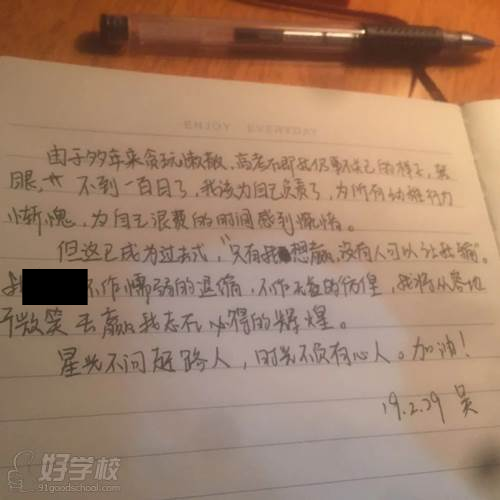 ENJOY EVERYDAY
由于多年来贪玩懒散,高考在即我仍事不关己的样子,
眼 不到一百日了,我该为自己负责了,为所有幼稚行为
惭愧,为自己浪费的时间感到惋惜。
但这已成为过去式,"只有我想赢,没有人可以让我输"。
我 不作懦弱的退缩,不作无益的彷徨,我将从容地
微笑去赢我志在必得的辉煌。
星光不问赶路人,时光不负有心人。加油!
19.2.29 吴
好学校
91goodschool.com